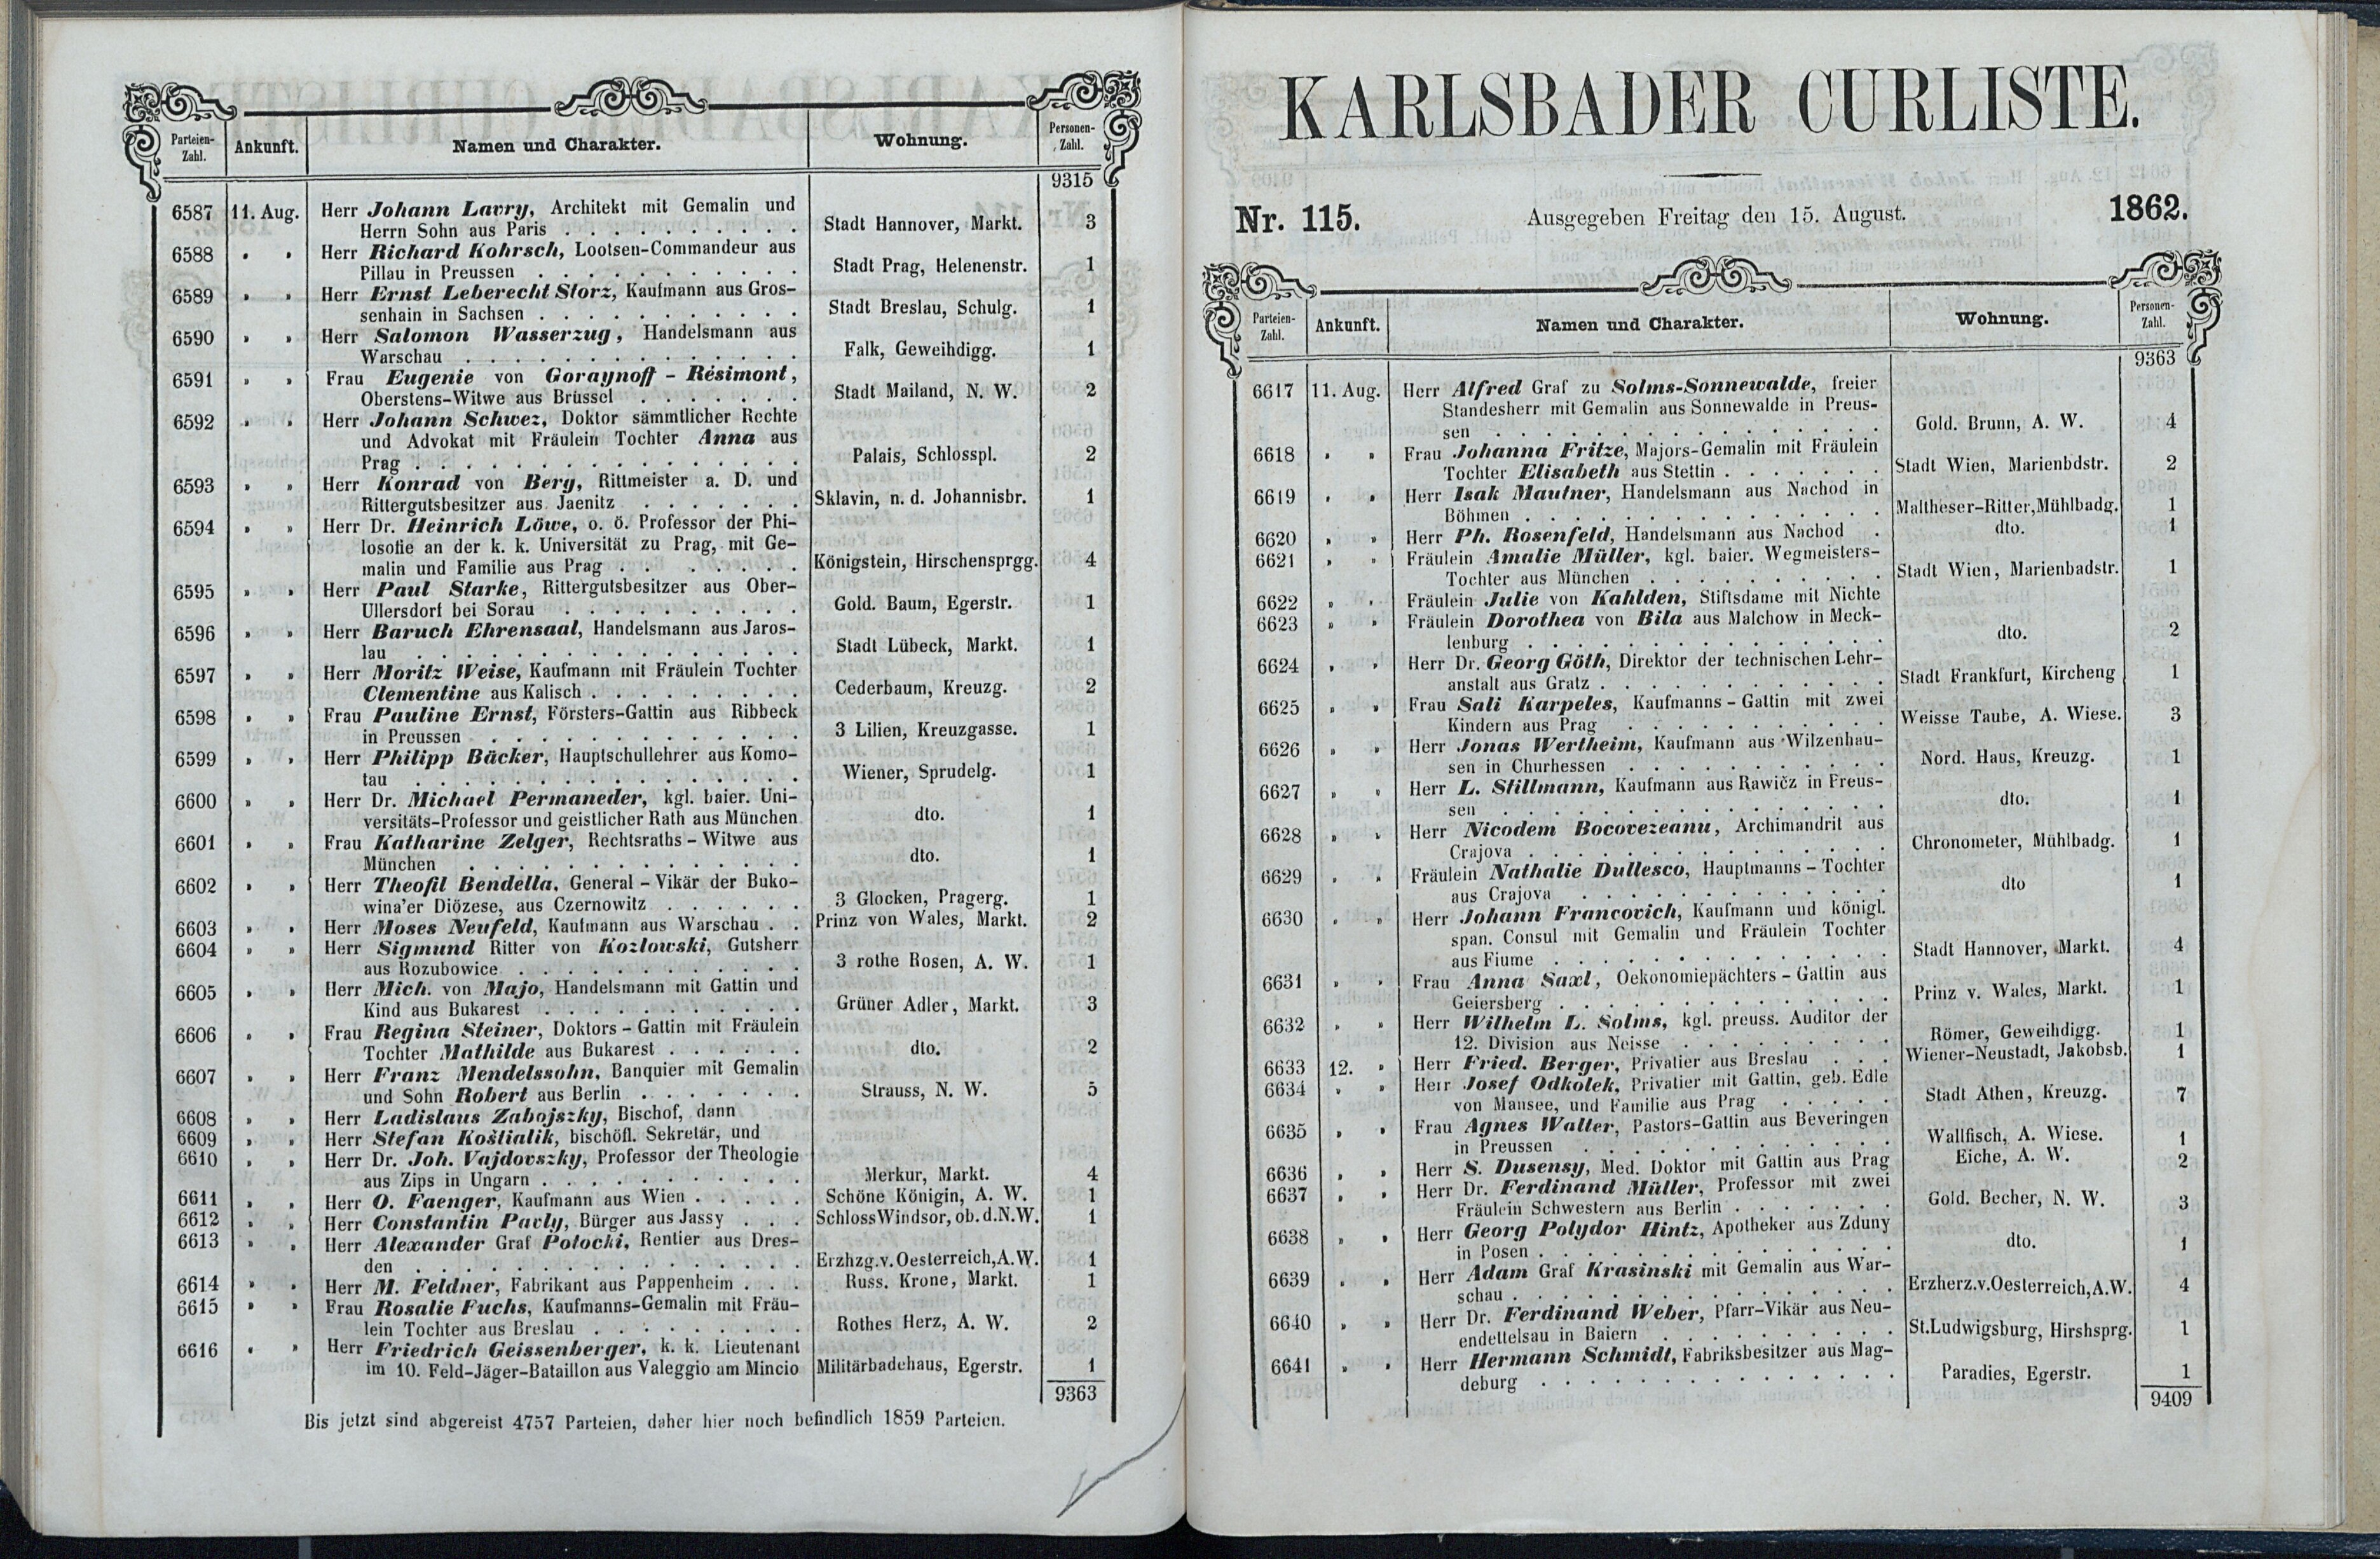 Parteien-Zahl. Ankunft. Namen und Charakter. Wohnung. Personen-Zahl.
9315
6587 11. Aug. Herr Johann Lavry, Architekt mit Gemalin und
Herrn Sohn aus Paris . . . Stadt Hannover, Markt. 3
6588 " " Herr Richard Kohrsch, Lootsen-Commandeur aus
Pillau in Preussen . . . Stadt Prag, Helenenstr. 1
6589 " " Herr Ernst Leberecht Storz, Kaufmann aus Gros-
senhain in Sachsen . . . Stadt Breslau, Schulg. 1
6590 " " Herr Salomon Wasserzug, Handelsmann aus
Warschau . . . Falk, Geweihdigg. 1
6591 " " Frau Eugenie von Goraynoff - Résimont,
Oberstens-Witwe aus Brüssel . . . Stadt Mailand, N. W. 2
6592 " " Herr Johann Schwez, Doktor sämmtlicher Rechte
und Advokat mit Fräulein Tochter Anna aus
Prag . . . Palais, Schlosspl. 2
6593 " " Herr Konrad von Berg, Rittmeister a. D. und
Rittergutsbesitzer aus Jaenitz . . . Sklavin, n. d. Johannisbr. 1
6594 " " Herr Dr. Heinrich Löwe, o. ö. Professor der Phi-
losofie an der k. k. Universität zu Prag, mit Ge-
malin und Familie aus Prag . . . Königstein, Hirschensprgg. 4
6595 " " Herr Paul Starke, Rittergutsbesitzer aus Ober-
Ullersdorf bei Sorau . . . Gold. Baum, Egerstr. 1
6596 " " Herr Baruch Ehrensaal, Handelsmann aus Jaros-
lau . . . Stadt Lübeck, Markt. 1
6597 " " Herr Moritz Weise, Kaufmann mit Fräulein Tochter
Clementine aus Kalisch . . . Cederbaum, Kreuzg. 2
6598 " " Frau Pauline Ernst, Försters-Gattin aus Ribbeck
in Preussen . . . 3 Lilien, Kreuzgasse. 1
6599 " " Herr Philipp Bäcker, Hauptschullehrer aus Komo-
tau . . . Wiener, Sprudelg. 1
6600 " " Herr Dr. Michael Permaneder, kgl. baier. Uni-
versitäts-Professor und geistlicher Rath aus München dto. 1
6601 " " Frau Katharine Zelger, Rechtsraths - Witwe aus
München . . . dto. 1
6602 " " Herr Theofil Bendella, General - Vikär der Buko-
wina'er Diözese, aus Czernowitz . . . 3 Glocken, Pragerg. 1
6603 " " Herr Moses Neufeld, Kaufmann aus Warschau . . Prinz von Wales, Markt. 2
6604 " " Herr Sigmund Ritter von Kozlowski, Gutsherr
aus Rozubowice . . . 3 rothe Rosen, A. W. 1
6605 " " Herr Mich. von Majo, Handelsmann mit Gattin und
Kind aus Bukarest . . . Grüner Adler, Markt. 3
6606 " " Frau Regina Steiner, Doktors - Gattin mit Fräulein
Tochter Mathilde aus Bukarest . . . dto. 2
6607 " " Herr Franz Mendelssohn, Banquier mit Gemalin
und Sohn Robert aus Berlin . . . Strauss, N. W. 5
6608 " " Herr Ladislaus Zabojszky, Bischof, dann
6609 " " Herr Stefan Koštialik, bischöfl. Sekretär, und
6610 " " Herr Dr. Joh. Vajdovszky, Professor der Theologie
aus Zips in Ungarn . . . Merkur, Markt. 4
6611 " " Herr O. Faenger, Kaufmann aus Wien . . . Schöne Königin, A. W. 1
6612 " " Herr Constantin Pavly, Bürger aus Jassy . . . Schloss Windsor, ob. d. N. W. 1
6613 " " Herr Alexander Graf Potocki, Rentier aus Dres-
den . . . Erzhzg. v. Oesterreich, A. W. 1
6614 " " Herr M. Feldner, Fabrikant aus Pappenheim . . . Russ. Krone, Markt. 1
6615 " " Frau Rosalie Fuchs, Kaufmanns-Gemalin mit Fräu-
lein Tochter aus Breslau . . . Rothes Herz, A. W. 2
6616 " " Herr Friedrich Geissenberger, k. k. Lieutenant
im 10. Feld-Jäger-Bataillon aus Valeggio am Mincio Militärbadehaus, Egerstr. 1
9363
Bis jetzt sind abgereist 4757 Parteien, daher hier noch befindlich 1859 Parteien.
KARLSBADER CURLISTE.
Nr. 115. Ausgegeben Freitag den 15. August. 1862.
Parteien-Zahl. Ankunft. Namen und Charakter. Wohnung. Personen-Zahl.
9363
6617 11. Aug. Herr Alfred Graf zu Solms-Sonnewalde, freier
Standesherr mit Gemalin aus Sonnewalde in Preus-
sen . . . Gold. Brunn, A. W. 4
6618 " " Frau Johanna Fritze, Majors-Gemalin mit Fräulein
Tochter Elisabeth aus Stettin . . . Stadt Wien, Marienbdstr. 2
6619 " " Herr Isak Mautner, Handelsmann aus Nachod in
Böhmen . . . Maltheser-Ritter, Mühlbadg. 1
6620 " " Herr Ph. Rosenfeld, Handelsmann aus Nachod . dto. 1
6621 " " Fräulein Amalie Müller, kgl. baier. Wegmeisters-
Tochter aus München . . . Stadt Wien, Marienbadstr. 1
6622 " " Fräulein Julie von Kahlden, Stiftsdame mit Nichte
6623 " " Fräulein Dorothea von Bila aus Malchow in Meck-
lenburg . . . dto. 2
6624 " " Herr Dr. Georg Göth, Direktor der technischen Lehr-
anstalt aus Gratz . . . Stadt Frankfurt, Kircheng 1
6625 " " Frau Sali Karpeles, Kaufmanns - Gattin mit zwei
Kindern aus Prag . . . Weisse Taube, A. Wiese. 3
6626 " " Herr Jonas Wertheim, Kaufmann aus Wilzenhau-
sen in Churhessen . . . Nord. Haus, Kreuzg. 1
6627 " " Herr L. Stillmann, Kaufmann aus Rawičz in Preus-
sen . . . dto. 1
6628 " " Herr Nicodem Bocovezeanu, Archimandrit aus
Crajova . . . Chronometer, Mühlbadg. 1
6629 " " Fräulein Nathalie Dullesco, Hauptmanns - Tochter
aus Crajova . . . dto 1
6630 " " Herr Johann Francovich, Kaufmann und königl.
span. Consul mit Gemalin und Fräulein Tochter
aus Fiume . . . Stadt Hannover, Markt. 4
6631 " " Frau Anna Saxl, Oekonomiepächters - Gattin aus
Geiersberg . . . Prinz v. Wales, Markt. 1
6632 " " Herr Wilhelm L. Solms, kgl. preuss. Auditor der
12. Division aus Neisse . . . Römer, Geweihdigg. 1
6633 12. " Herr Fried. Berger, Privatier aus Breslau . . . Wiener-Neustadt, Jakobsb. 1
6634 " " Herr Josef Odkolek, Privatier mit Gattin, geb. Edle
von Mansee, und Familie aus Prag . . . Stadt Athen, Kreuzg. 7
6635 " " Frau Agnes Walter, Pastors-Gattin aus Beveringen
in Preussen . . . Wallfisch, A. Wiese. 1
6636 " " Herr S. Dusensy, Med. Doktor mit Gattin aus Prag Eiche, A. W. 2
6637 " " Herr Dr. Ferdinand Müller, Professor mit zwei
Fräulein Schwestern aus Berlin . . . Gold. Becher, N. W. 3
6638 " " Herr Georg Polydor Hintz, Apotheker aus Zduny
in Posen . . . dto. 1
6639 " " Herr Adam Graf Krasinski mit Gemalin aus War-
schau . . . Erzherz. v. Oesterreich, A. W. 4
6640 " " Herr Dr. Ferdinand Weber, Pfarr-Vikär aus Neu-
endettelsau in Baiern . . . St. Ludwigsburg, Hirshsprg. 1
6641 " " Herr Hermann Schmidt, Fabriksbesitzer aus Mag-
deburg . . . Paradies, Egerstr. 1
9409